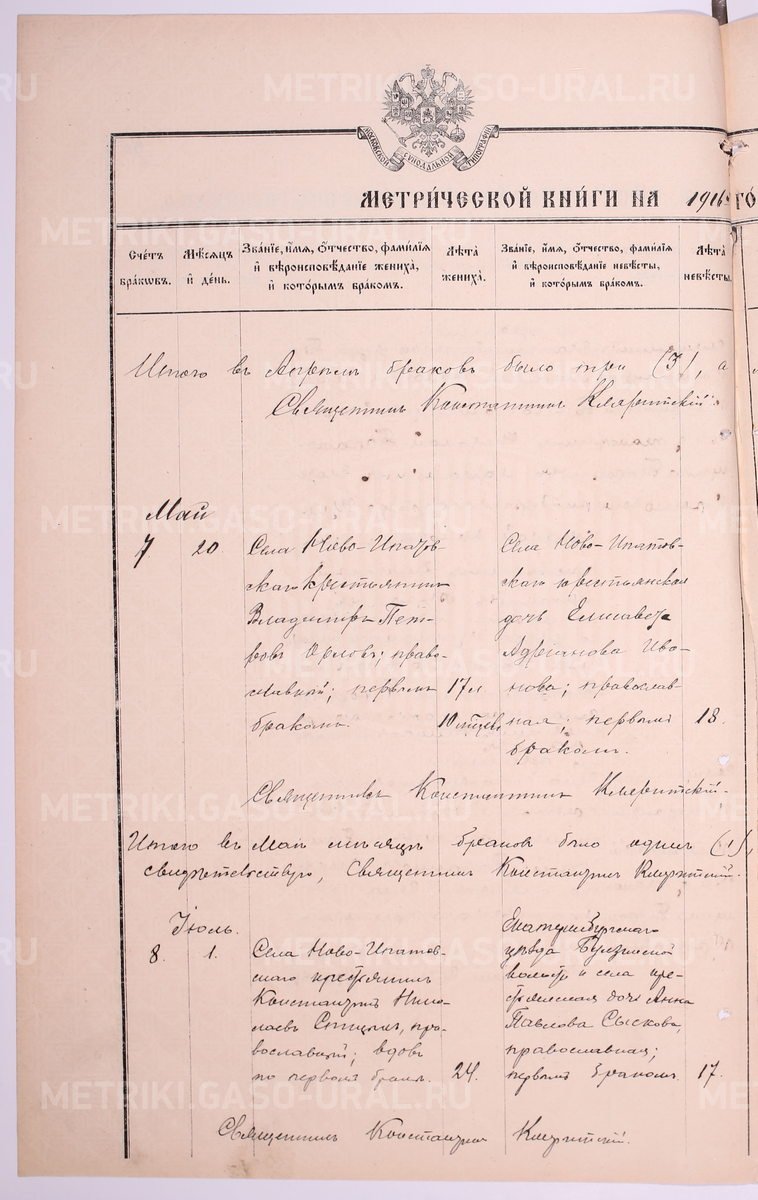 МОСКОВСКОЙ СѴНОДАЛЬНОЙ ТИПОГРАФІИ
МЕТРИЧЕСКОЙ КНИГИ НА 1916 ГО
Счетъ браковъ.
Мѣсяцъ и день.
Званіе, имя, отчество, фамилія и вѣроисповѣданіе жениха, и которымъ бракомъ.
Лѣта жениха.
Званіе, имя, отчество, фамилія и вѣроисповѣданіе невѣсты, и которымъ бракомъ.
Лѣта невѣсты.
Итого въ Апрѣлѣ браковъ было три (3), а
Священникъ Константинъ
Май
7 20 Села Ново-Ипатов-
скаго крестьянинъ
Владиміръ Пет-
ровъ Орловъ; право-
славный; первымъ 17 л.
бракомъ. 10 мѣсяц.
Села Ново-Ипатов-
скаго крестьянская
дочь Елисавета
Адріанова Ива-
нова; православ-
ная; первымъ 18.
бракомъ.
Священникъ Константинъ
Итого въ Маѣ мѣсяцѣ браковъ было одинъ (1),
свидѣтельствую, Священникъ Константинъ
Іюль.
8. 1. Села Ново-Ипатов-
скаго крестьянинъ
Константинъ Нико-
лаевъ пра-
вославный; вдовъ
по первомъ бракѣ. 24.
Екатеринбургскаго
уѣзда
волости и села кре-
стьянская дочь Анна
Павлова Сыскова,
православная;
первымъ бракомъ. 17.
Священникъ Константинъ
METRIKI.GASO-URAL.RU